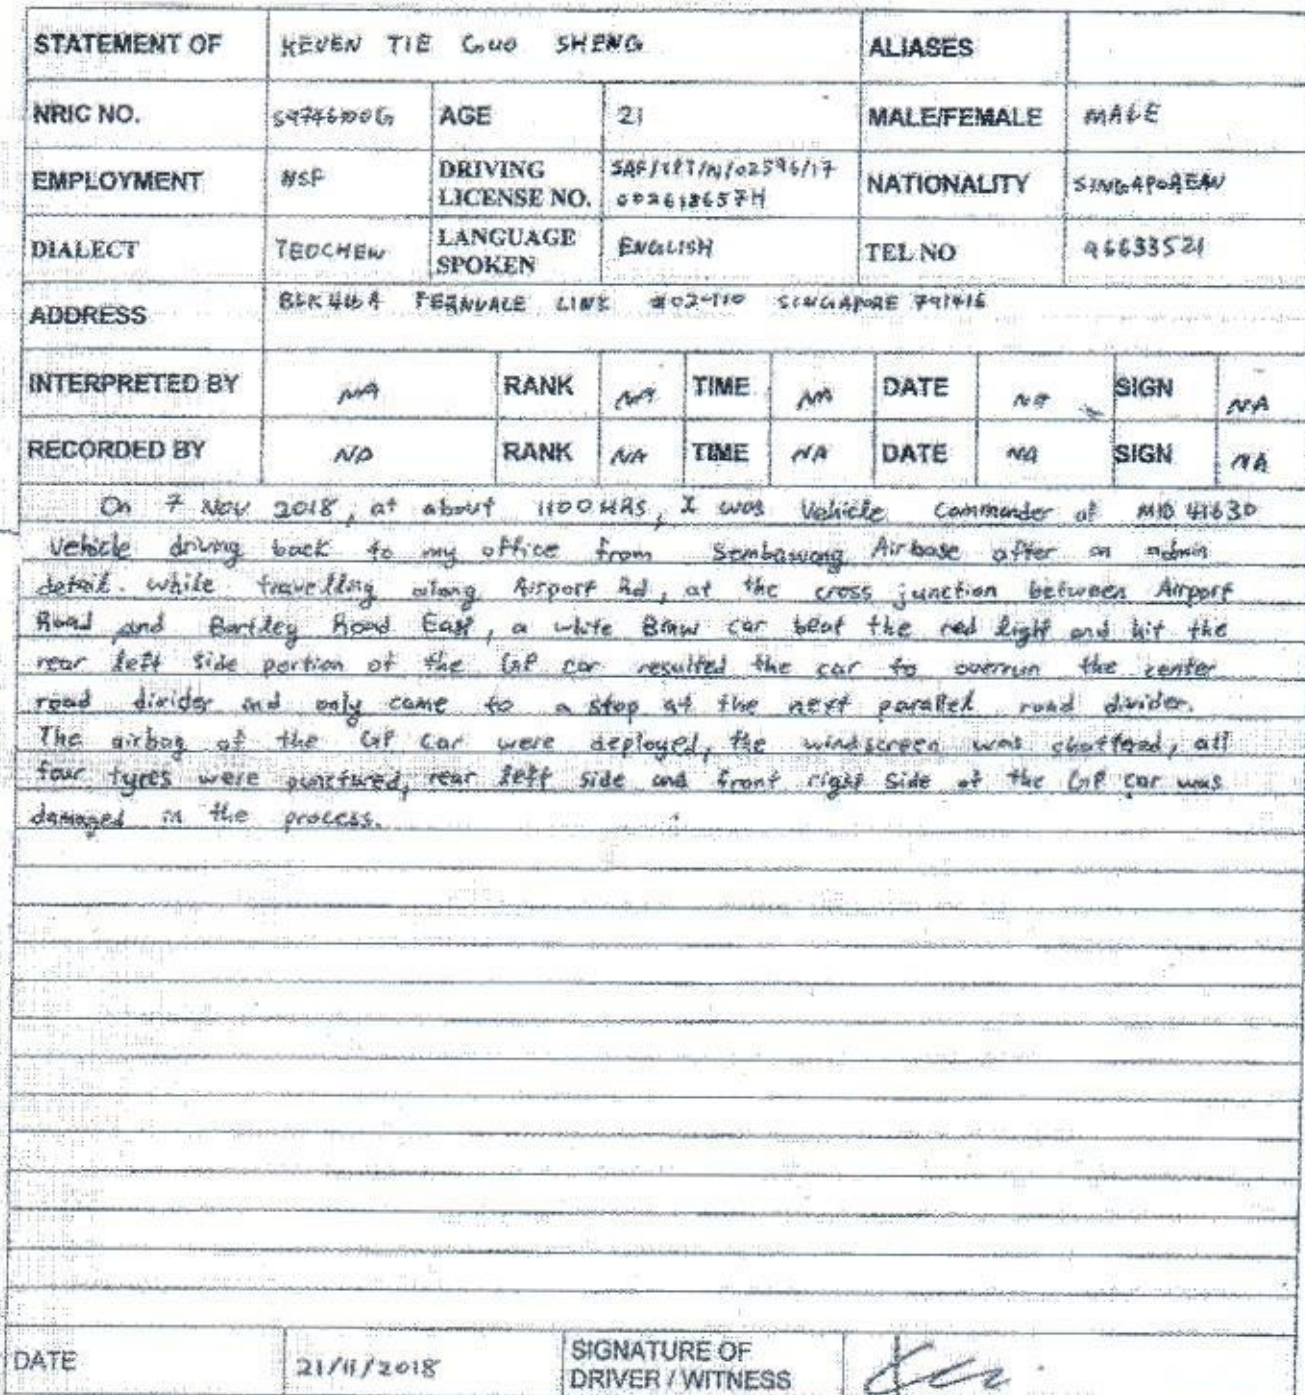 STATEMENT OF KEVEN TIE GUO SHENG ALIASES
NRIC NO. S9746100G AGE 21 MALE/FEMALE MALE
EMPLOYMENT NSF DRIVING LICENSE NO. NATIONALITY SINGAPOREAN
DIALECT TEOCHEW LANGUAGE SPOKEN ENGLISH TEL NO 96633521
ADDRESS FERNVALE LINK #02-110 SINGAPORE 791416
INTERPRETED BY NA RANK NA TIME NA DATE NA SIGN NA
RECORDED BY NA RANK NA TIME NA DATE NA SIGN NA
On 7 Nov 2018, at about 1100HRS, I was Vehicle Commander of MID 41630
Vehicle driving back to my office from Sembawang Airbase after an admin
detail. While travelling along Airport Rd, at the cross junction between Airport
Road and Bartley Road East, a white BMW car beat the red light and hit the
rear left side portion of the GP car resulted the car to overrun the center
road divider and only came to a stop at the next parallel road divider.
The airbag of the GP car were deployed, the windscreen was shattered, all
four tyres were punctured, rear left side and front right side of the GP car was
damaged in the process.
DATE 21/11/2018 SIGNATURE OF DRIVER / WITNESS